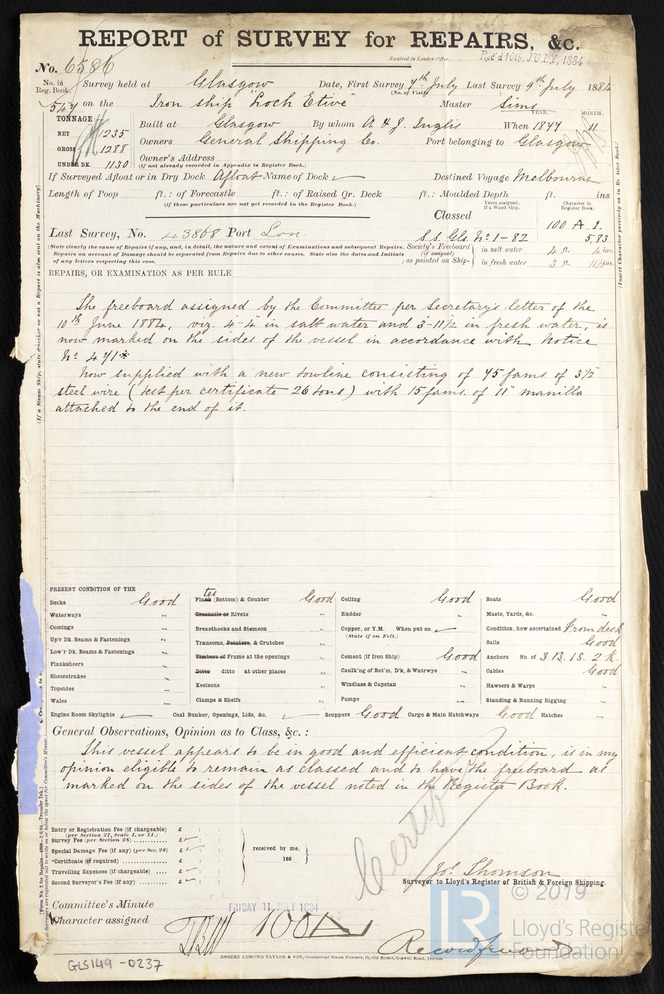 REPORT of SURVEY for REPAIRS, &c.
Received in London Office
No. 6586
No. in Reg. Book. Survey held at Glasgow Date, First Survey 7th July Last Survey 9th July 1884
(No. of Visits)
547 on the Iron ship "Loch Etive" Master Sims
TONNAGE YEAR. MONTH.
NET 1235 Built at Glasgow By whom A & J. Inglis When 1877 11
GROSS 1288 Owners General Shipping Co. Port belonging to Glasgow
UNDER DK. 1130 Owner's Address
(If not already recorded in Appendix to Register Book.)
If Surveyed Afloat or in Dry Dock Afloat Name of Dock Destined Voyage Melbourne
Length of Poop ft.: of Forecastle ft.: of Raised Qr. Deck ft.: Moulded Depth ft. ins
(if these particulars are not yet recorded in the Register Book.)
Years assigned, if a Wood ship. Character in Register Book.
Classed 100 A 1.
Last Survey, No. 43868 Port Lon. S.S. Gls. No 1-82 5,83
(State clearly the cause of Repairs if any, and, in detail, the nature and extent of Examinations and subsequent Repairs.
Repairs on account of Damage should be separated from Repairs due to other causes. State also the dates and Initials
of any letters respecting this case.)
Society's Freeboard (if assigned) as painted on Ship- in salt water 4 ft. 4 ins.
in fresh water 3 ft. 11½ ins.
REPAIRS, OR EXAMINATION AS PER RULE
The freeboard assigned by the Committee per Secretary's letter of the
10th June 1884, viz. 4-4 in salt water and 3-11½ in fresh water, is
now marked on the sides of the vessel in accordance with Notice
No 471*
Now supplied with a new towline consisting of 75 fams of 3½
steel wire (test per certificate 26 tons) with 15 fams. of 11" manilla
attached to the end of it.
PRESENT CONDITION OF THE
Decks Good
Waterways "
Comings "
Up'r Dk. Beams & Fastenings "
Low'r Dk. Beams & Fastenings "
Planksheers "
Sheerstrakes "
Topsides "
Wales "
Engine Room Skylights
Plates (Bottom) & Counter Good
Treenails or Rivets "
Breasthooks and Stemson "
Transoms, Pointers, & Crutches "
Timbers or Frame at the openings "
Ditto ditto at other places "
Keelsons "
Clamps & Shelfs "
Coal Bunker, Openings, Lids, &c.
Ceiling Good
Rudder "
Copper, or Y.M. When put on
(State if on Felt.)
Cement (if Iron Ship) Good
Caulk'ng of Bot'm, D'k, & Watrwys "
Windlass & Capstan "
Pumps "
Scuppers Good Cargo & Main Hatchways Good Hatches "
Boats Good
Masts, Yards, &c. "
Condition, how ascertained From deck
Sails Good
Anchors No. of 3 B. 1 S. 2 K.
Cables Good
Hawsers & Warps "
Standing & Running Rigging "
General Observations, Opinion as to Class, &c. :
This vessel appears to be in good and efficient condition, is in my
opinion eligible to remain as classed and to have the freeboard as
marked on the sides of the vessel noted in the Register Book.
Entry or Registration Fee (if chargeable) £
(per Section 27, Scale I, or II.)
Survey Fee (per Section 28) £
Special Damage Fee (if any) (per Sec. 28) £
*Certificate (if required) £
Travelling Expenses (if chargeable) £
Second Surveyor's Fee (if any) £
received by me,
188
Jos. Thomson
Surveyor to Lloyd's Register of British & Foreign Shipping.
Committee's Minute FRIDAY 11 JULY 1884
Character assigned 100 A
ROBERT EDMUND TAYLOR & SON,
GLS149-0237
© 2019
LR
Lloyd's Register
Foundation